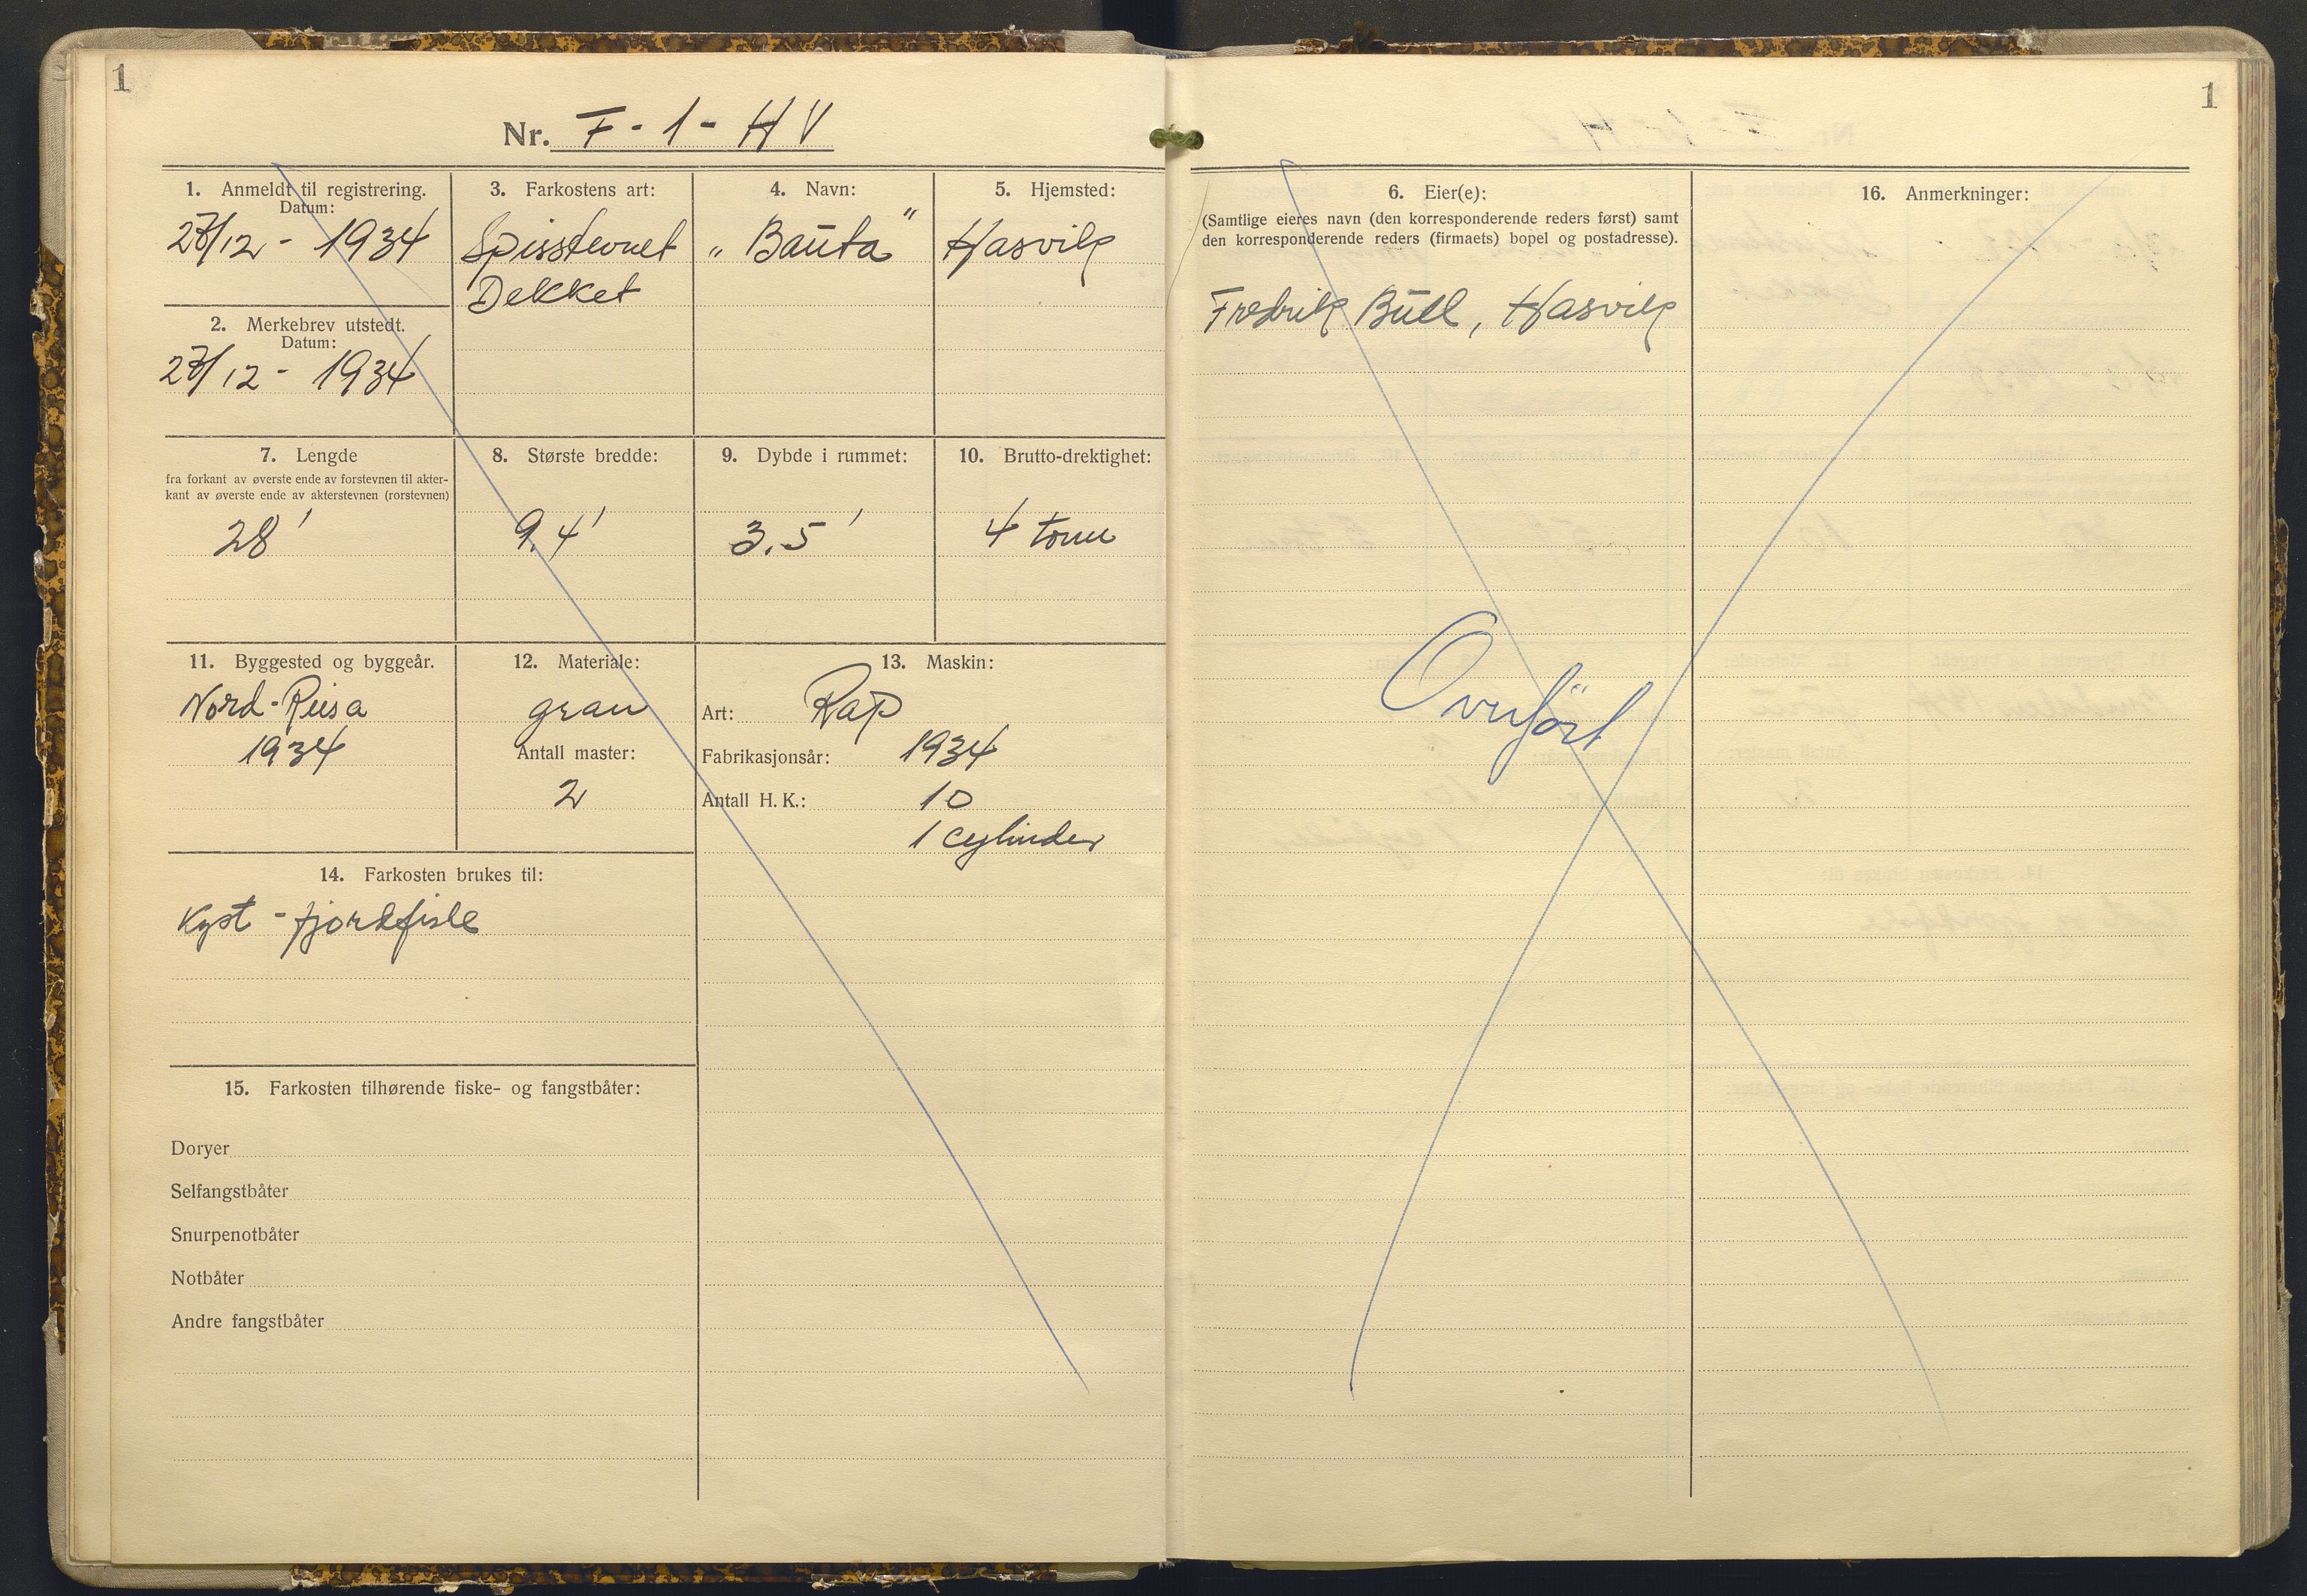 1
Nr. F - 1 - H V
1. Anmeldt til registrering.
Datum:
27/12 - 1934
2. Merkebrev utstedt.
Datum:
27/12 - 1934
3. Farkostens art:
Spisstevnet
Dekket
4. Navn:
„ Bauta "
5. Hjemsted:
Hasvik
7. Lengde
fra forkant av øverste ende av forstevnen til akter-
kant av øverste ende av akterstevnen (rorstevnen)
28'
8. Største bredde:
9.4'
9. Dybde i rummet:
3.5'
10. Brutto-drektighet:
4 tonn
11. Byggested og byggeår.
Nord-Reisa
1934
12. Materiale:
gran
Antall master:
2
13. Maskin:
Art: Rap
Fabrikasjonsår: 1934
Antall H. K.: 10
1 cylinder
14. Farkosten brukes til:
Kyst - fjordfiske
15. Farkosten tilhørende fiske- og fangstbåter:
Doryer
Selfangstbåter
Snurpenotbåter
Notbåter
Andre fangstbåter
1
6. Eier(e):
(Samtlige eieres navn (den korresponderende reders først) samt
den korresponderende reders (firmaets) bopel og postadresse).
Fredrik Bull, Hasvik
Overført
16. Anmerkninger: